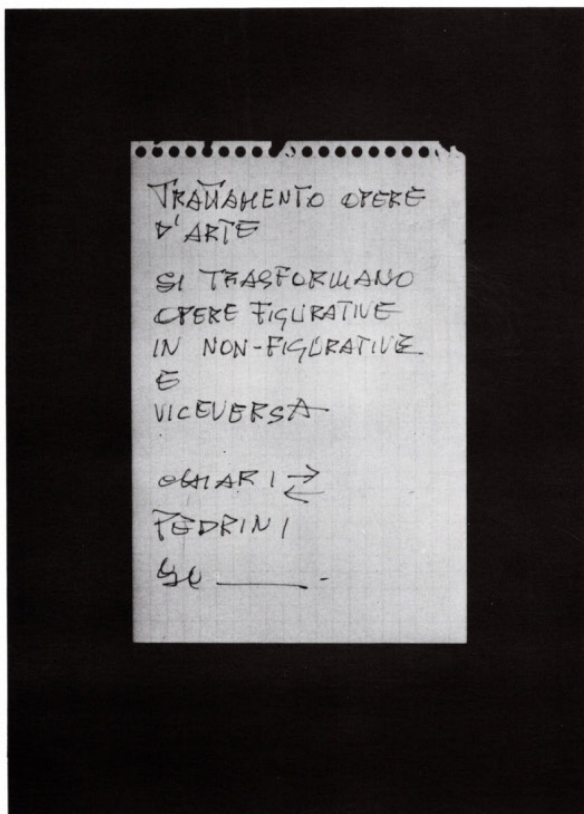 TRATTAMENTO OPERE
D'ARTE
SI TRASFORMANO
OPERE FIGURATIVE
IN NON-FIGURATIVE
E
VICEVERSA
CHIARI →
←
PEDRINI